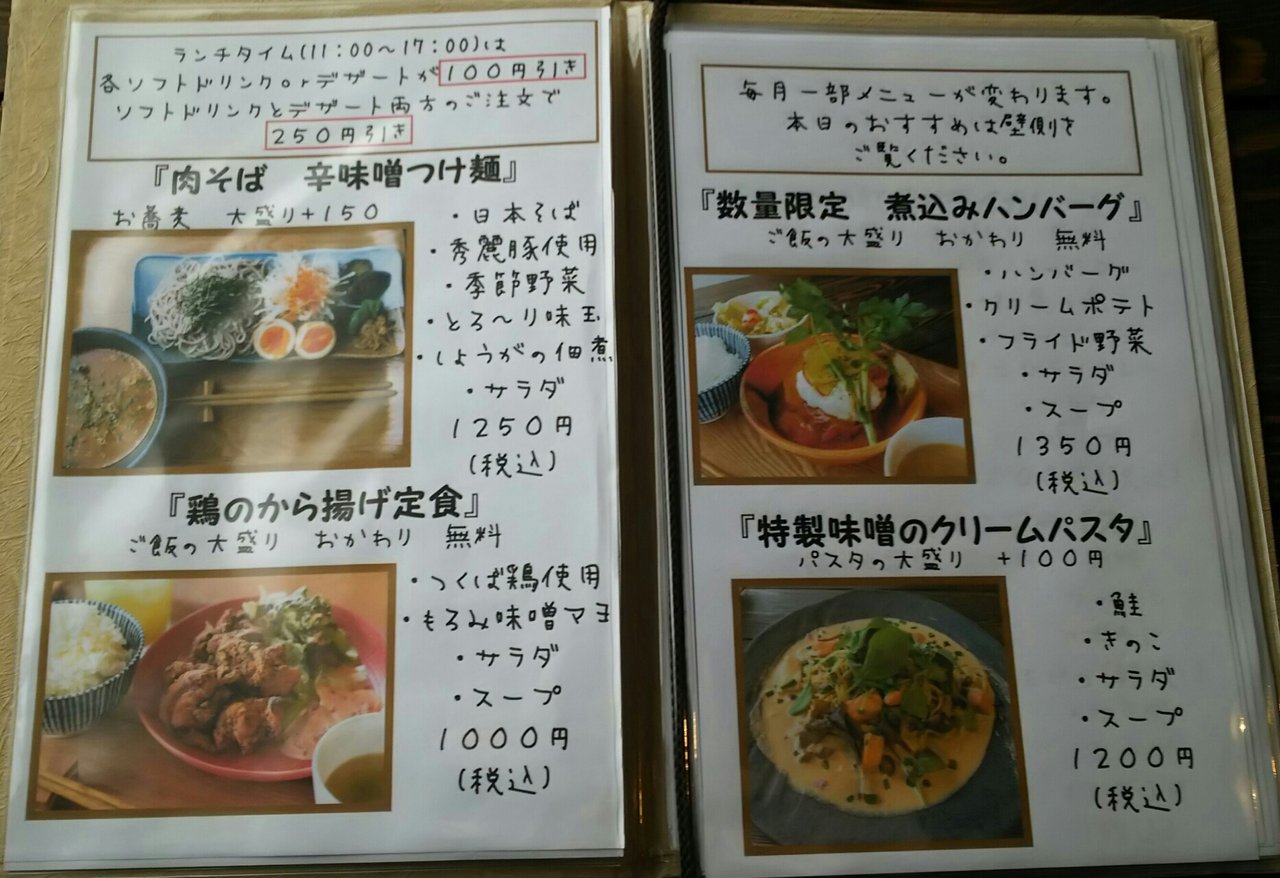 ランチタイム(11:00〜17:00)は
各ソフトドリンクorデザートが100円引き
ソフトドリンクとデザート両方のご注文で
250円引き
『肉そば　辛味噌つけ麺』
お蕎麦　大盛り+150
・日本そば
・秀麗豚使用
・季節野菜
・とろ〜り味玉
・しょうがの佃煮
・サラダ
1250円
(税込)
『鶏のから揚げ定食』
ご飯の大盛り　おかわり　無料
・つくば鶏使用
・もろみ味噌マヨ
・サラダ
・スープ
1000円
(税込)
毎月一部メニューが変わります。
本日のおすすめは壁側を
ご覧ください。
『数量限定　煮込みハンバーグ』
ご飯の大盛り　おかわり　無料
・ハンバーグ
・クリームポテト
・フライド野菜
・サラダ
・スープ
1350円
(税込)
『特製味噌のクリームパスタ』
パスタの大盛り　+100円
・鮭
・きのこ
・サラダ
・スープ
1200円
(税込)